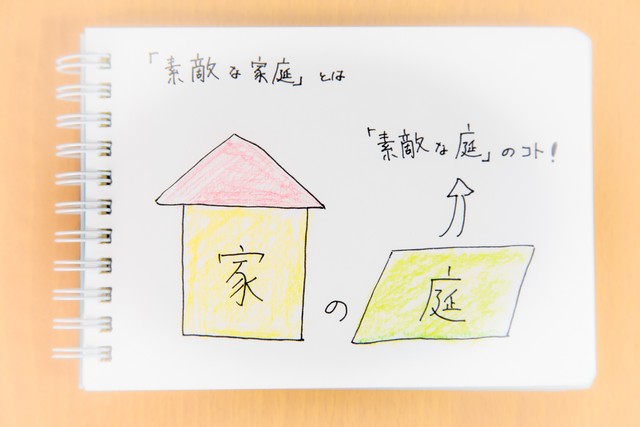 「素敵な家庭」とは
「素敵な庭」のコト!
家
の
庭